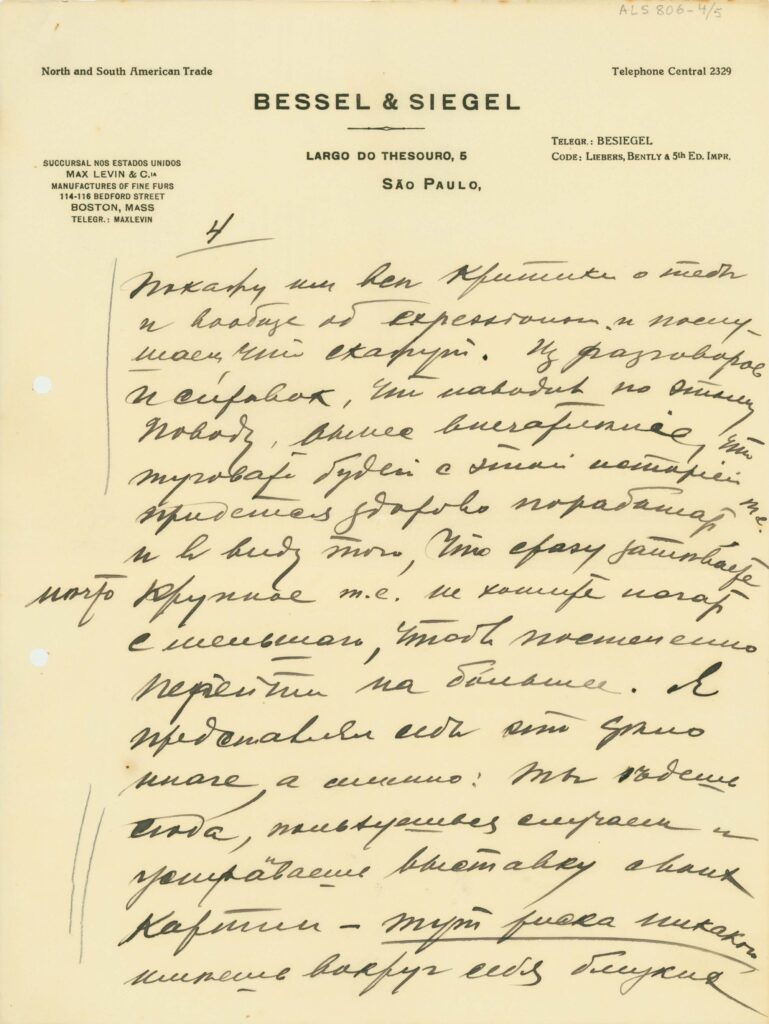 ALS 806-4/5
North and South American Trade
Telephone Central 2329
BESSEL & SIEGEL
LARGO DO THESOURO, 5
SÃO PAULO,
TELEGR.: BESIEGEL
CODE: LIEBERS, BENTLY & 5th ED. IMPR.
SUCCURSAL NOS ESTADOS UNIDOS
MAX LEVIN & C.IA
MANUFACTURES OF FINE FURS
114-116 BEDFORD STREET
BOSTON, MASS
TELEGR.: MAXLEVIN
4
Покажу им все критики о тебе
и вообще об expressionism. и послу-
шаем, что скажут. Из разговоров
и справок, что наводил по этому
поводу, вынес впечатление, что
туговато будет с этой историей т.е.
придется здорово поработать
и в виду того, что сразу затеваете
крупное т.е. не хотите начать
с меньшего, чтобы постепенно
перейти на большее. Я
представлял себе это дело
иначе, а именно: Ты едешь
сюда, пользуешься случаем и
устраиваешь выставку своих
картин – тут риска никакого
имеешь вокруг себя близких